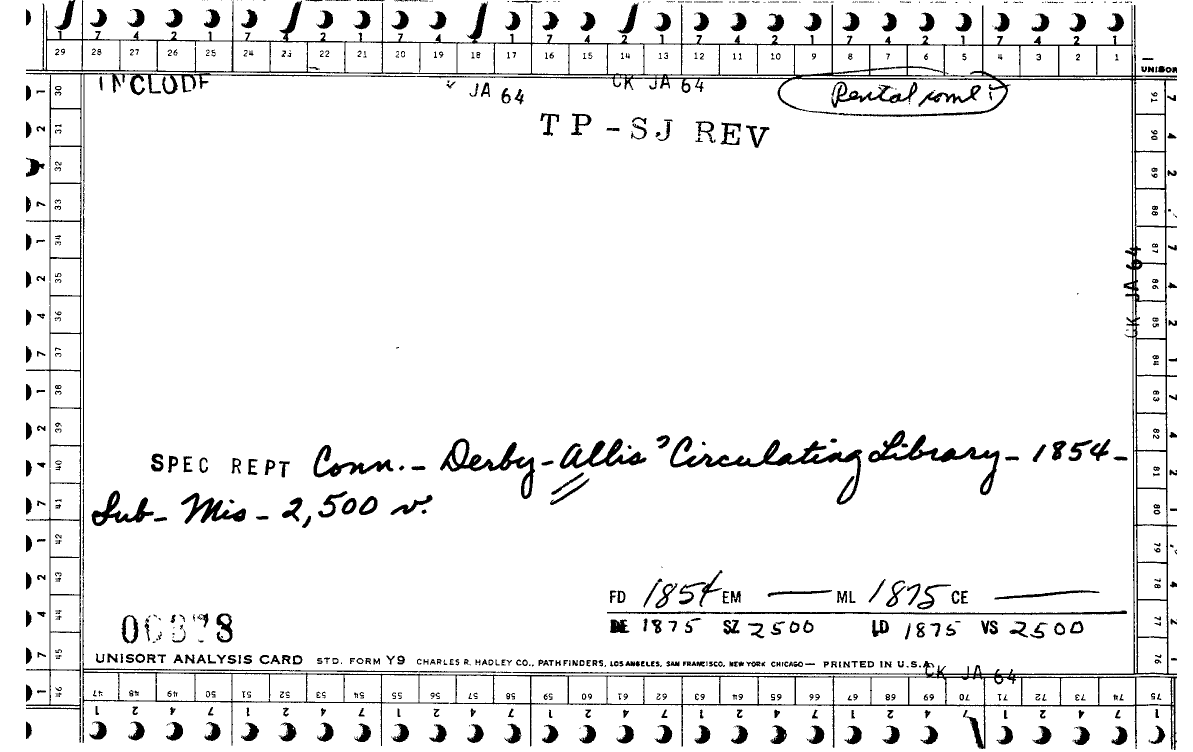 1 7 4 2 1 7 4 2 1 7 4 2 1 7 4 2 1 7 4 2 1 7 4 2 1 7 4 2 1
29 28 27 26 25 24 23 22 21 20 19 18 17 16 15 14 13 12 11 10 9 8 7 6 5 4 3 2 1
UNISOR
INCLUDE
JA 64
CK JA 64
Rental
TP-SJ REV
CK JA 64
SPEC REPT Conn. - Derby - Allis' Circulating Library - 1854 -
Sub - Mis - 2,500 v.
FD 1854 EM — ML 1875 CE —
DE 1875 SZ 2500 LD 1875 VS 2500
06378
UNISORT ANALYSIS CARD STD. FORM Y9 CHARLES R. HADLEY CO., PATHFINDERS, LOS ANGELES, SAN FRANCISCO, NEW YORK CHICAGO — PRINTED IN U.S.A.
CK JA 64
46 47 48 49 50 51 52 53 54 55 56 57 58 59 60 61 62 63 64 65 66 67 68 69 70 71 72 73 74 75
1 2 4 7 1 2 4 7 1 2 4 7 1 2 4 7 1 2 4 7 1 2 4 7 1 2 4 7 1